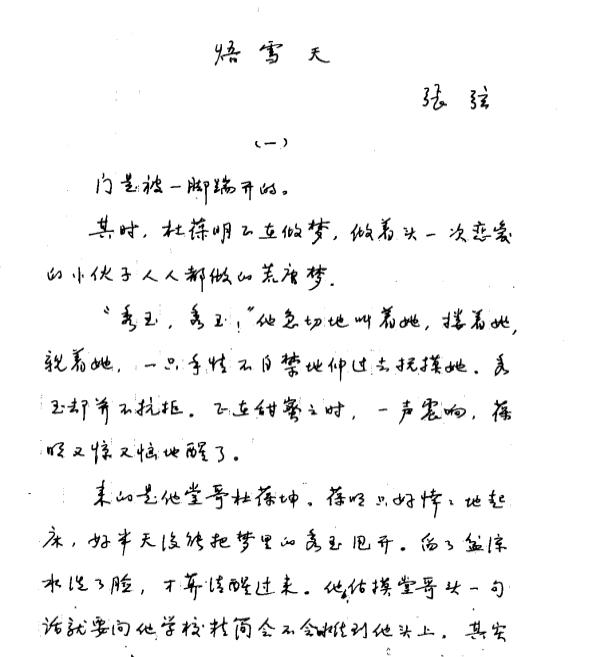 焐雪天
张弦
(一)
门是被一脚踹开的。
其时,杜葆明正在做梦,做着头一次恋爱
的小伙子人人都做的荒唐梦.
“秀玉,秀玉!”他急切地叫着她,搂着她,
亲着她,一只手情不自禁地伸过去抚摸她。秀
玉却并不抗拒。正在甜蜜之时,一声震响,葆
明又惊又恼地醒了。
来的是他堂哥杜葆坤。葆明只好悻〻地起
床,好半天没能把梦里的秀玉甩开。舀了盆凉
水洗了脸,才算清醒过来。他估摸堂哥头一句
话就要问他学校精简会不会到他头上。其实